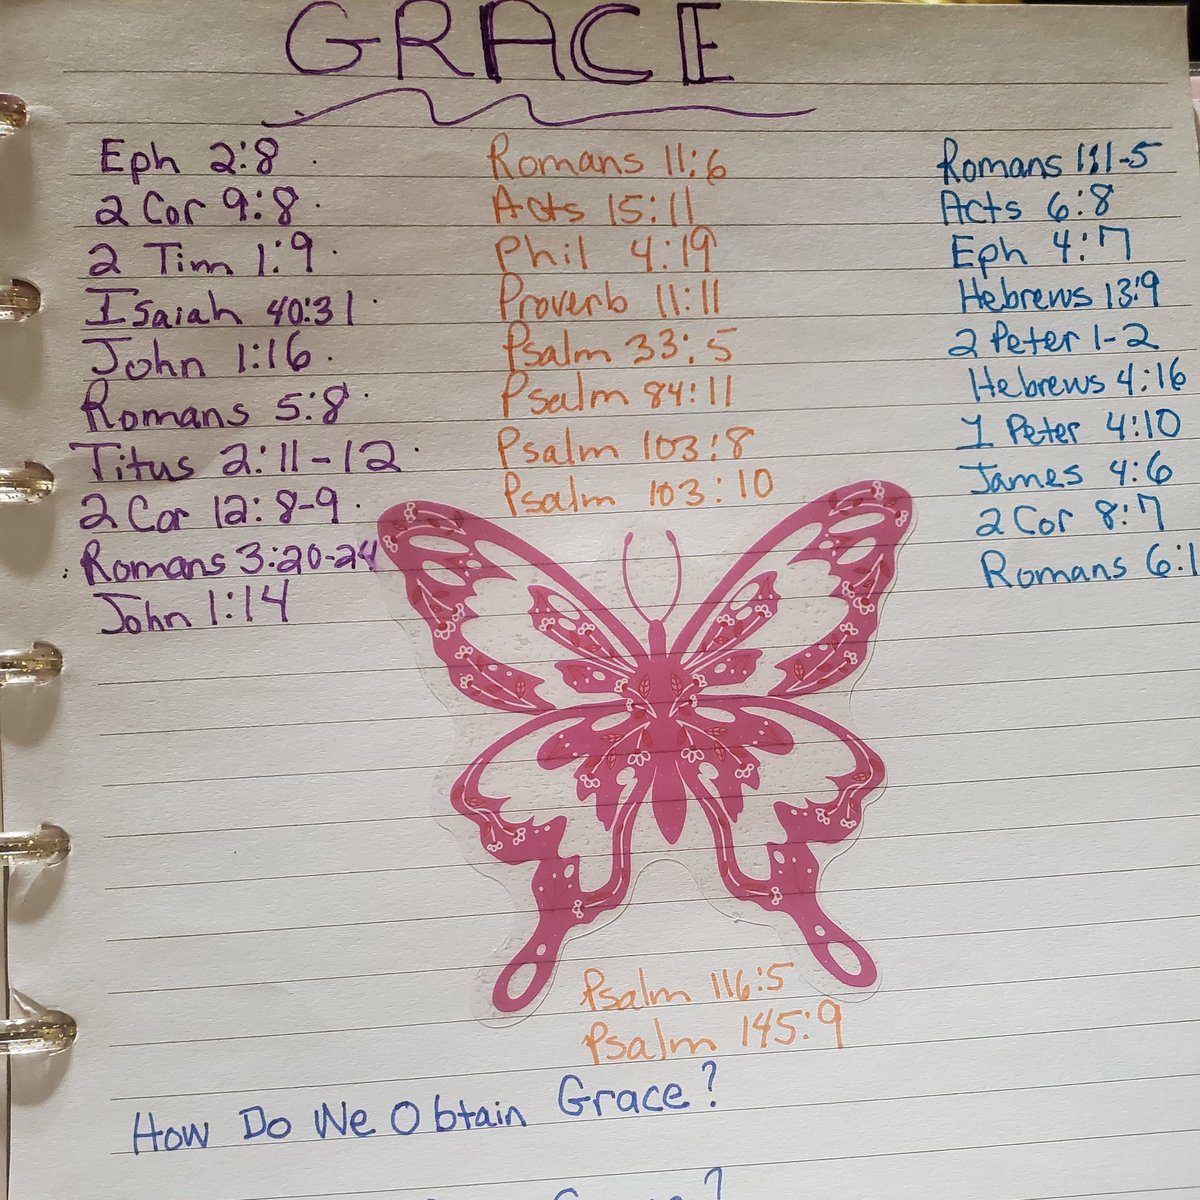 GRACE
Eph 2:8
2 Cor 9:8
2 Tim 1:9
Isaiah 40:31
John 1:16
Romans 5:8
Titus 2:11-12
2 Cor 12:8-9
Romans 3:20-24
John 1:14
Romans 11:6
Acts 15:11
Phil 4:19
Proverb 11:11
Psalm 33:5
Psalm 84:11
Psalm 103:8
Psalm 103:10
Psalm 116:5
Psalm 145:9
Romans 1:1-5
Acts 6:8
Eph 4:7
Hebrews 13:9
2 Peter 1-2
Hebrews 4:16
1 Peter 4:10
James 4:6
2 Cor 8:7
Romans 6:1
How Do We Obtain Grace?